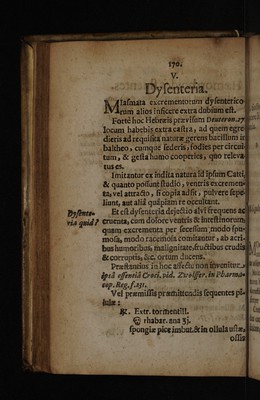 170.
V.
Dysenteria.
Miasmata excrementorum dysenterico-
rum alios inficere extra dubium est.
Forte hoc Hebræis prævisum Deuteron. 17
locum habebis extra castra, ad quem egre
dieris ad requisita naturæ gerens bacillum in
baltheo, cumque sederis, fodies per circui
tum, & gesta humo cooperies, quo releva
tus es.
Imitantur ex indita natura id ipsum Catti,
& quanto possunt studio, ventris excremen-
ta, vel attracto, & scopia asse, pulvere sepe
liunt, aut alia quapiam re occultant.
Dysente-
ria quid?
Et est dysenteria dejectio alvi frequens ac
cruenta, cum dolore ventris & intestinorum,
quam excrementa per secessum modo spu-
mosa, modo racemosa comitantur, ab acri-
bus humoribus, malignitate, fructibus crudis
& corruptis, &c. ortum ducens.
Præstantius in hoc affectu non invenitur
ipsâ essentiâ Croci, vid. Zwelffer. in Pharma-
cop. Reg. f. 231.
Vel præmissis præmittendis sequentes pi-
lulæ:
℞. Extr. tormentill.
rhabar. ana ʒj.
spongiæ pice imbut. & in ollula ustæ,
ossis